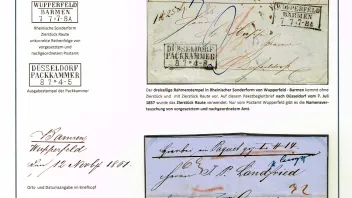 WUPPERFELD
BARMEN
7 7·7-8A
Rheinische Sonderform
Zierstück Raute
unkorrekte Reihenfolge von
vorgesetztem und
nachgeordnetem Postamt
DÜSSELDORF
PACKKAMMER
8 7*4-5
Ausgabestempel der Packkammer
WUPPERFELD
BARMEN
7 7·7-8A
DÜSSELDORF
PACKKAMMER
8 7*4-5
Der dreizeilige Rahmenstempel in Rheinischer Sonderform von Wupperfeld - Barmen kommt ohne
Zierstück und mit Zierstück Raute vor. Auf diesem Paketbegleitbrief nach Düsseldorf vom 7. Juli
1857 wurde das Zierstück Raute verwendet. Nur vom Postamt Wupperfeld gibt es die Namensver-
tauschung von vorgesetztem und nachgeordnetem Amt.
Barmen
Wupperfeld
12 Novbr 1861.
Orts- und Datumsangabe im Briefkopf
Herrn J. P. Landfried
32